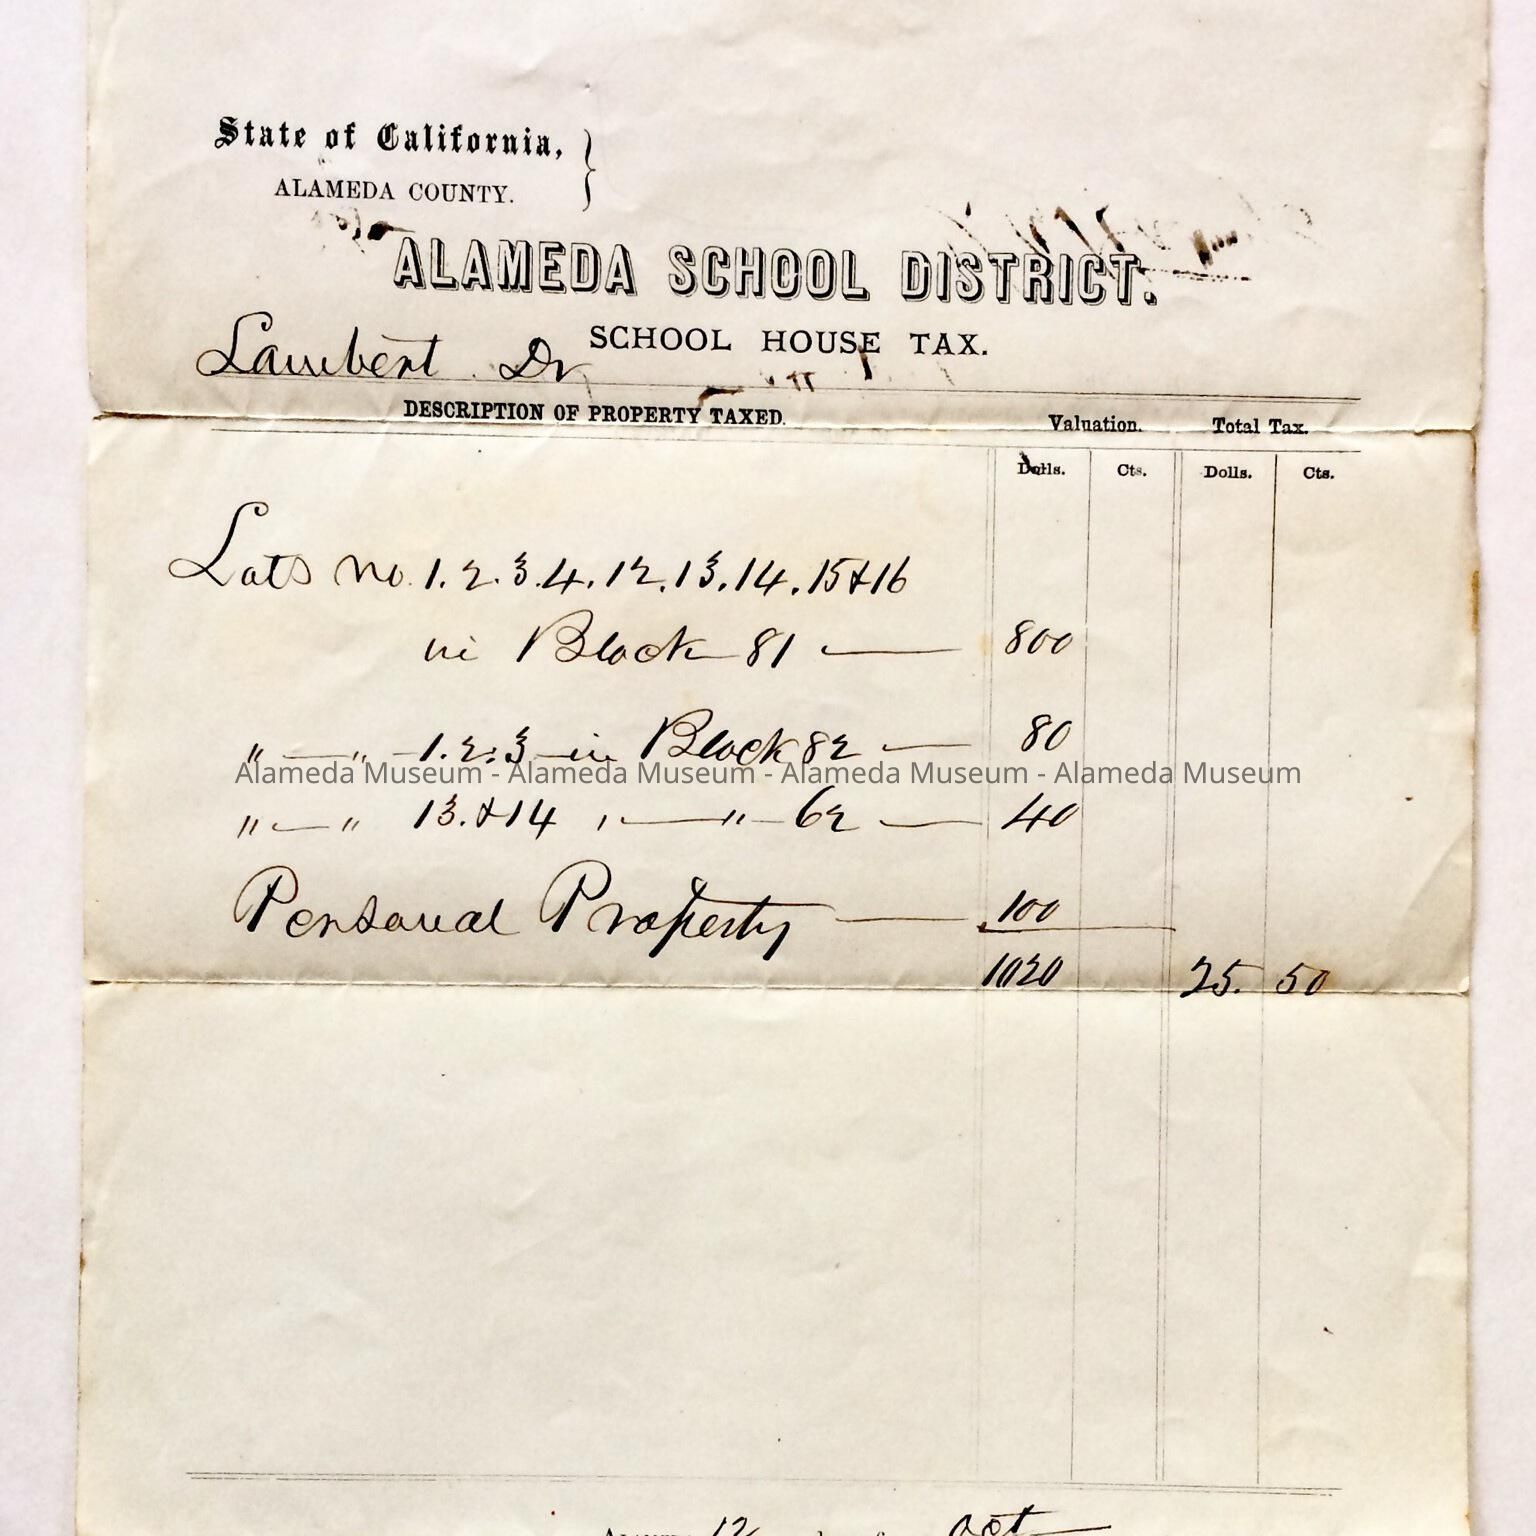 State of California,
ALAMEDA COUNTY.
ALAMEDA SCHOOL DISTRICT.
SCHOOL HOUSE TAX.
Lambert Dr
DESCRIPTION OF PROPERTY TAXED. Valuation. Total Tax.
Dolls. Cts. Dolls. Cts.
Lots no. 1. 2. 3. 4. 12. 13. 14. 15 & 16
in Block 81 — 800
" — " 1. 2. 3 in Block 82 — 80
Alameda Museum - Alameda Museum - Alameda Museum - Alameda Museum
" — " 13. & 14 " — " 62 — 40
Personal Property — 100
1020 25. 50
12 Oct